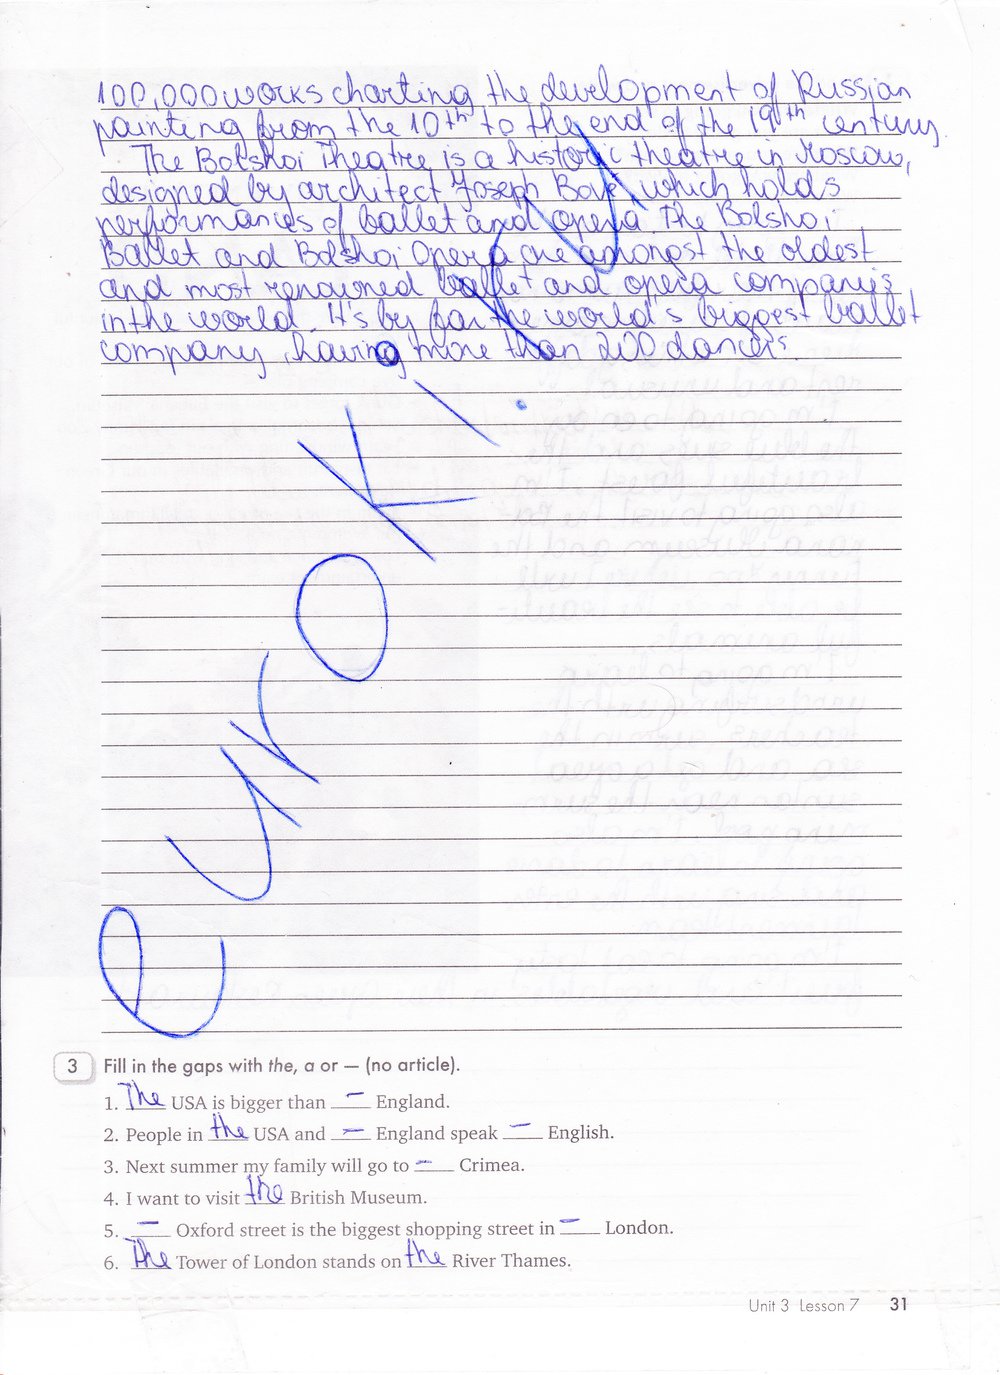 100,000 works charting the development of Russian
painting from the 10th to the end of the 19th century.
The Bolshoi Theatre is a historic theatre in Moscow,
designed by architect Joseph Bove, which holds
performances of ballet and opera. The Bolshoi
Ballet and Bolshoi Opera are amongst the oldest
and most renowned ballet and opera company's
in the world. It's by far the world's biggest ballet
company, having more than 200 dancers.
euroki.
3 Fill in the gaps with the, a or — (no article).
1. The USA is bigger than — England.
2. People in the USA and — England speak — English.
3. Next summer my family will go to — Crimea.
4. I want to visit the British Museum.
5. — Oxford street is the biggest shopping street in — London.
6. The Tower of London stands on the River Thames.
Unit 3 Lesson 7 31